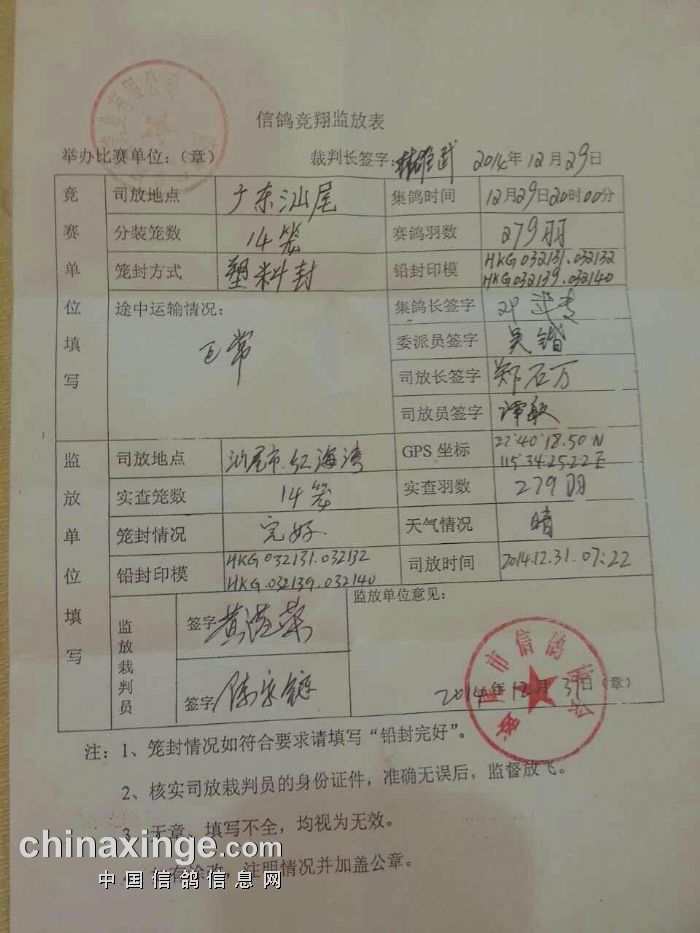 信鸽竞翔监放表
举办比赛单位：（章） 裁判长签字： 2014年12月29日
竞赛单位填写
司放地点 广东汕尾 集鸽时间 12月29日20时00分
分装笼数 14笼 赛鸽羽数 279羽
笼封方式 塑料封 铅封印模 HKG 032131.032132
HKG 032139.032140
途中运输情况： 正常 集鸽长签字
委派员签字 吴锴
司放长签字 郑石万
司放员签字 谭敏
监放单位填写
司放地点 汕尾市.红海湾 GPS 坐标 22°40'18.50N
115°34'25.22E
实查笼数 14笼 实查羽数 279羽
笼封情况 完好. 天气情况 晴
铅封印模 HKG 032131.032132
HKG.032139.032140
司放时间 2014.12.31.07:22
监放裁判员 签字
签字
监放单位意见：
市信鸽
2014年12月31日（章）
注：1、笼封情况如符合要求请填写“铅封完好”。
2、核实司放裁判员的身份证件，准确无误后，监督放飞。
3、无章、填写不全，均视为无效。
有涂改，注明情况并加盖公章。
chinaxinge.com
中国信鸽信息网